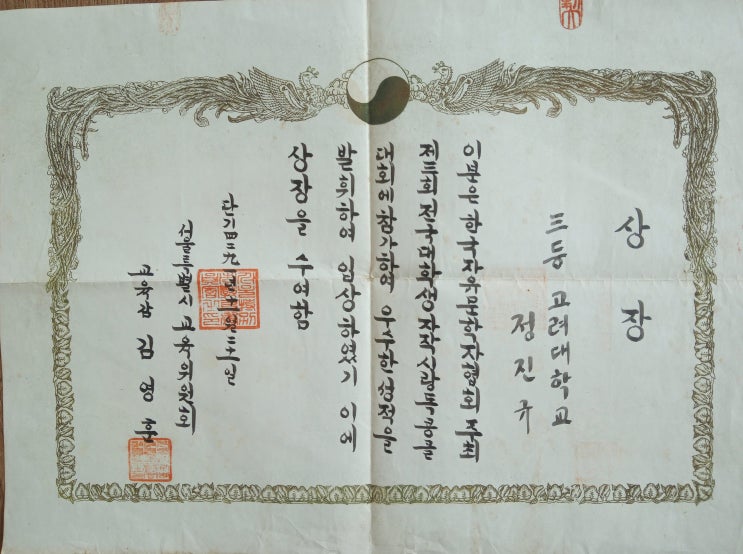 상장
三등 고려대학교
정진규
이분은 한국자유문학자협회 주최
제三회 전국대학생자작시낭독콩쿨
대회에 참가하여 우수한 성적을
발휘하여 입상하였기 이에
상장을 수여함
단기四二九
서울특별시 교육위원회
교육감 김영훈